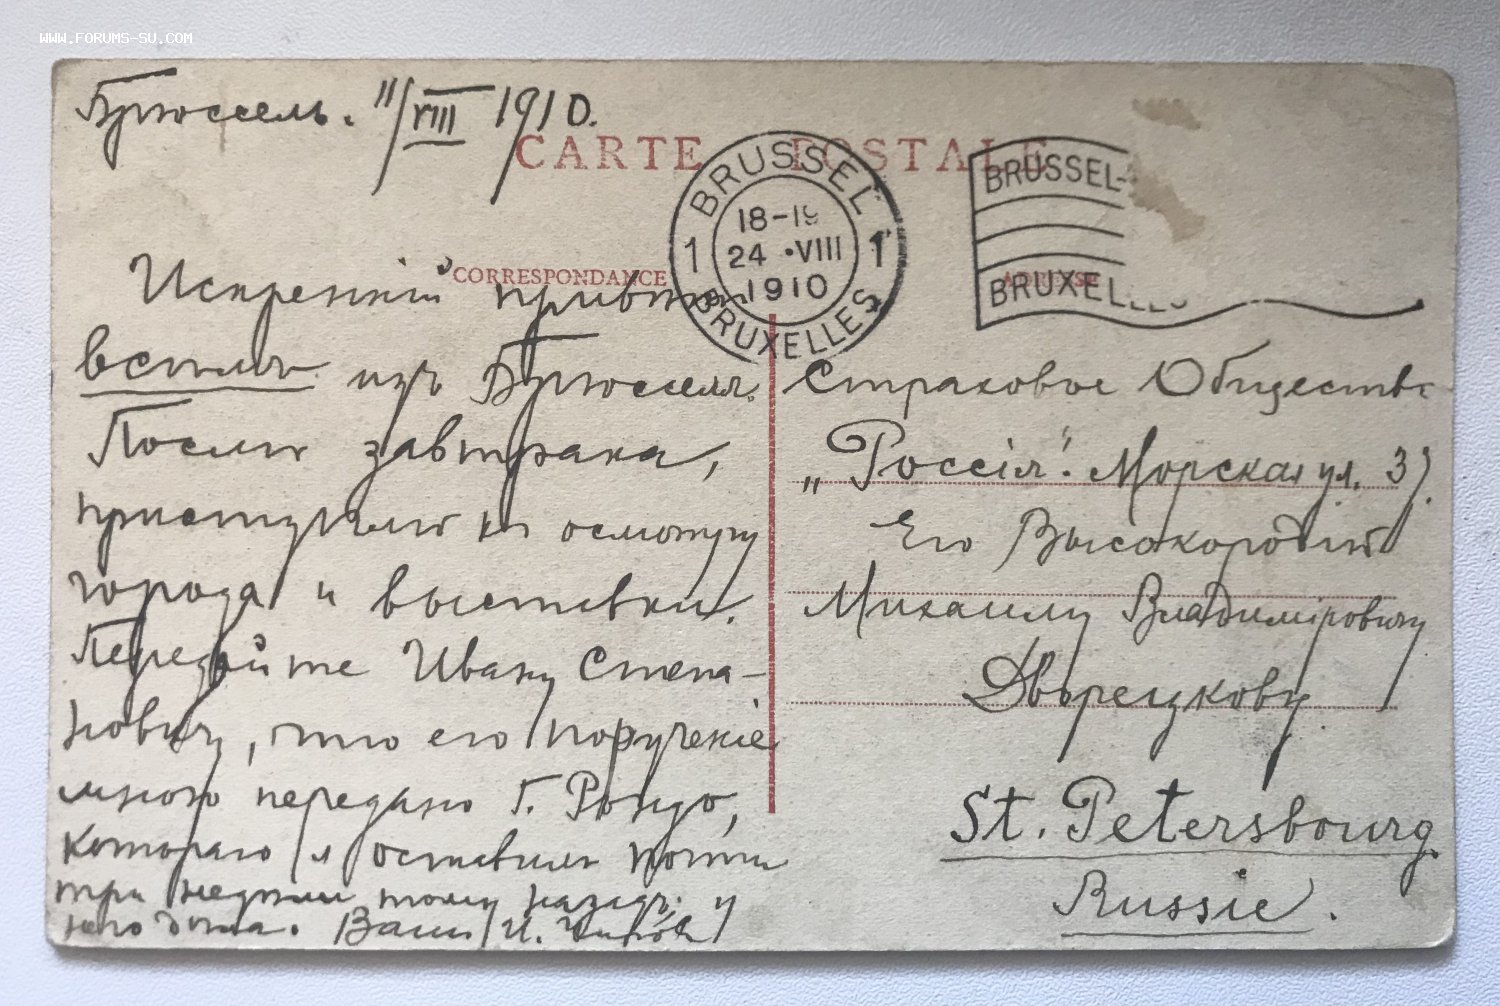 WWW.FORUMS-SU.COM
Брюссель. 11/VIII 1910.
CARTE POSTALE
BRUSSEL
1 18-19 1
24 •VIII
1910
BRUXELLES
BRUSSEL-
BRUXELLES
CORRESPONDANCE
ADRESSE
Искренній привѣтъ
всѣмъ изъ Брюсселя.
Послѣ завтрака,
приступаемъ къ осмотру
города и выставки.
Передайте Ивану Степа-
новичу, что его порученіе
мною передано Г. Рондо,
котораго я оставилъ почти
три недѣли тому назадъ у
него дома. Вашъ И.
Страховое Общество
„Россія". Морская ул. 37.
Его Высокородію
Михаилу Владиміровичу
Дворецкову.
St. Petersbourg
Russie.